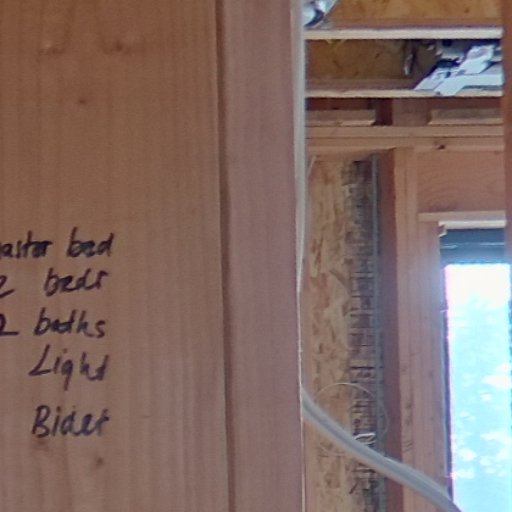 master bed
2 beds
2 baths
Light
Bidet